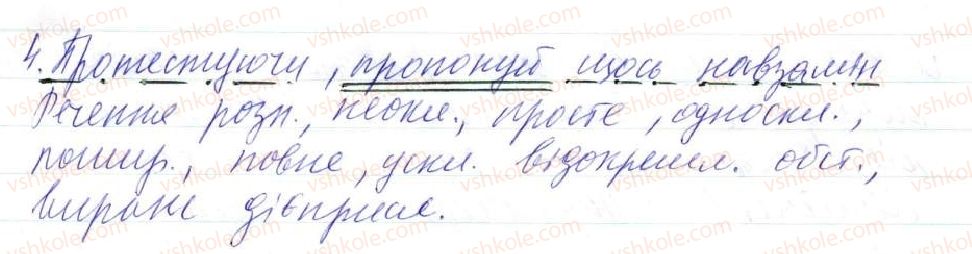 4. Протестуючи, пропонуй щось навзамін
Речення розп., неокл., просте, односкл.,
пошир., повне, ускл. відокремл. обст.,
вираж. дієприсл.